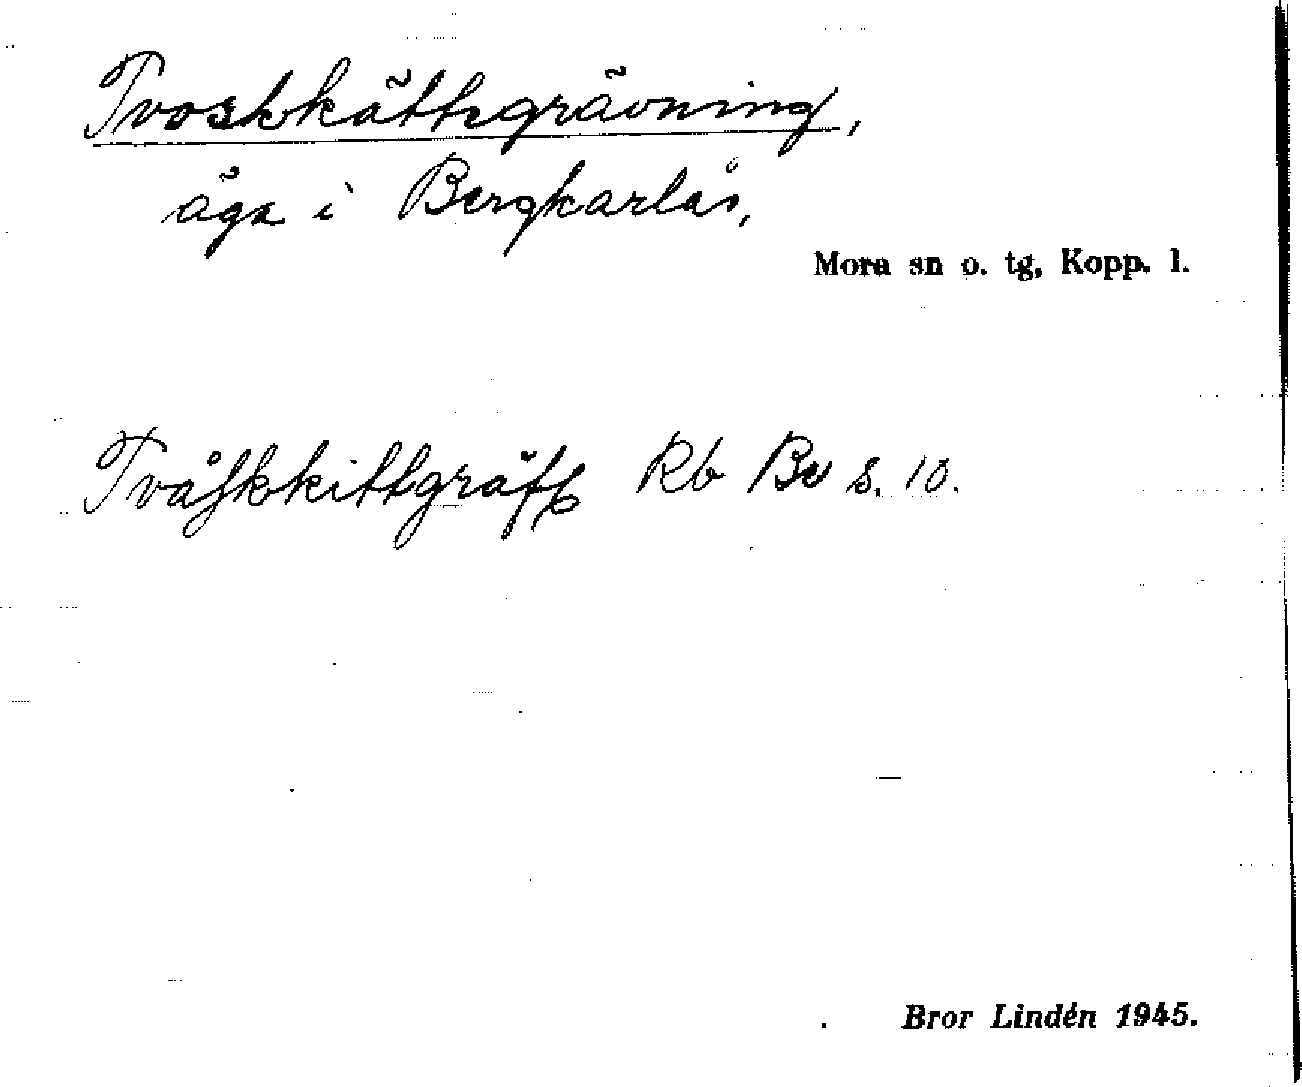 Tvoskkättgrävning,
äga i Bergkarlås,
Mora sn o. tg, Kopp. l.
Tvåskkittgräft Rb Be s. 10.
Bror Lindén 1945.